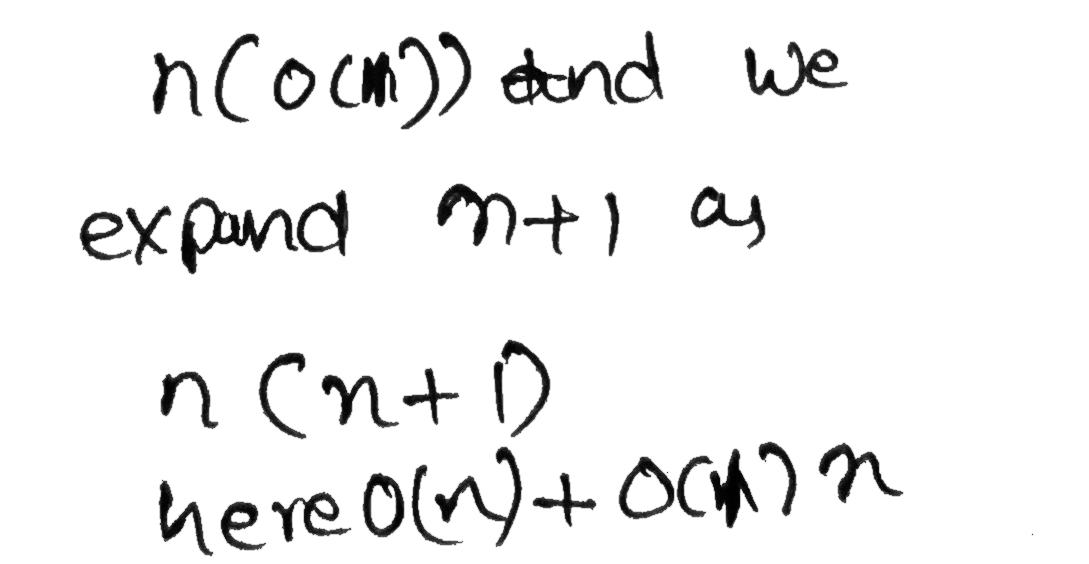 n(O(n)) and we
expand n+1 as
n(n+1)
here O(n)+O(n)n